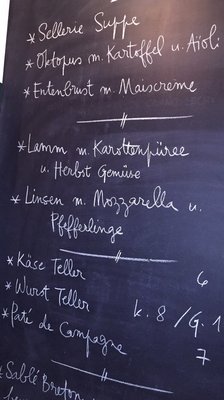 * Sellerie Suppe
* Oktopus m. Kartoffel u. Aïoli
* Entenbrust m. Maiscreme
* Lamm m. Karottenpüree
u. Herbst Gemüse
* Linsen m. Mozzarella u.
Pfefferlinge
* Käse Teller 6
* Wurst Teller k. 8 / G. 1
* Paté de Campagne 7
* Sablé Breton